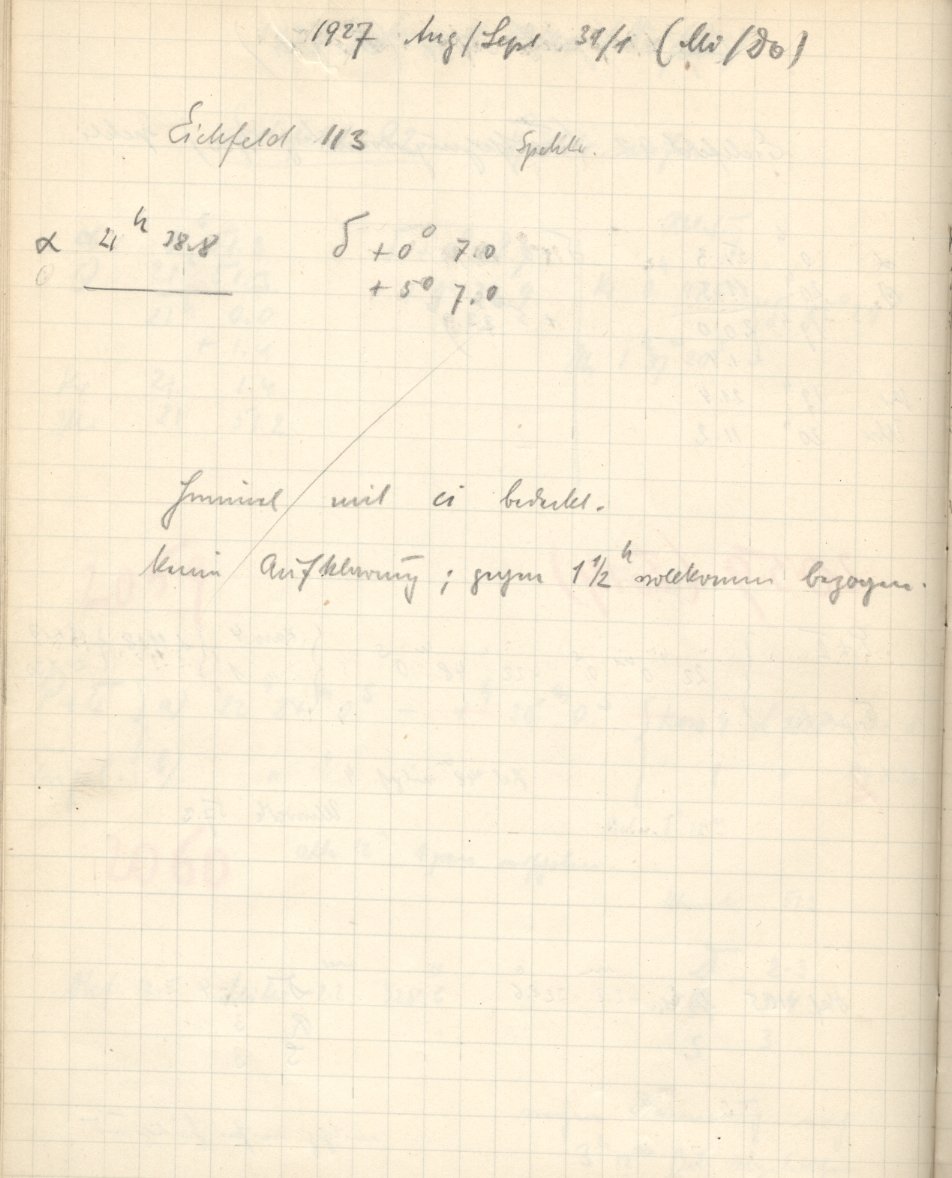 1927 Aug/Sept 31/1 (Mi/Do)
Eichfeld 113 Spektr.
α 21ʰ 38.8 δ +0° 7.0
+5° 7.0
Himmel mit ci bedeckt.
Keine Aufklarung; gegen 1 1/2ʰ vollkommen bezogen.